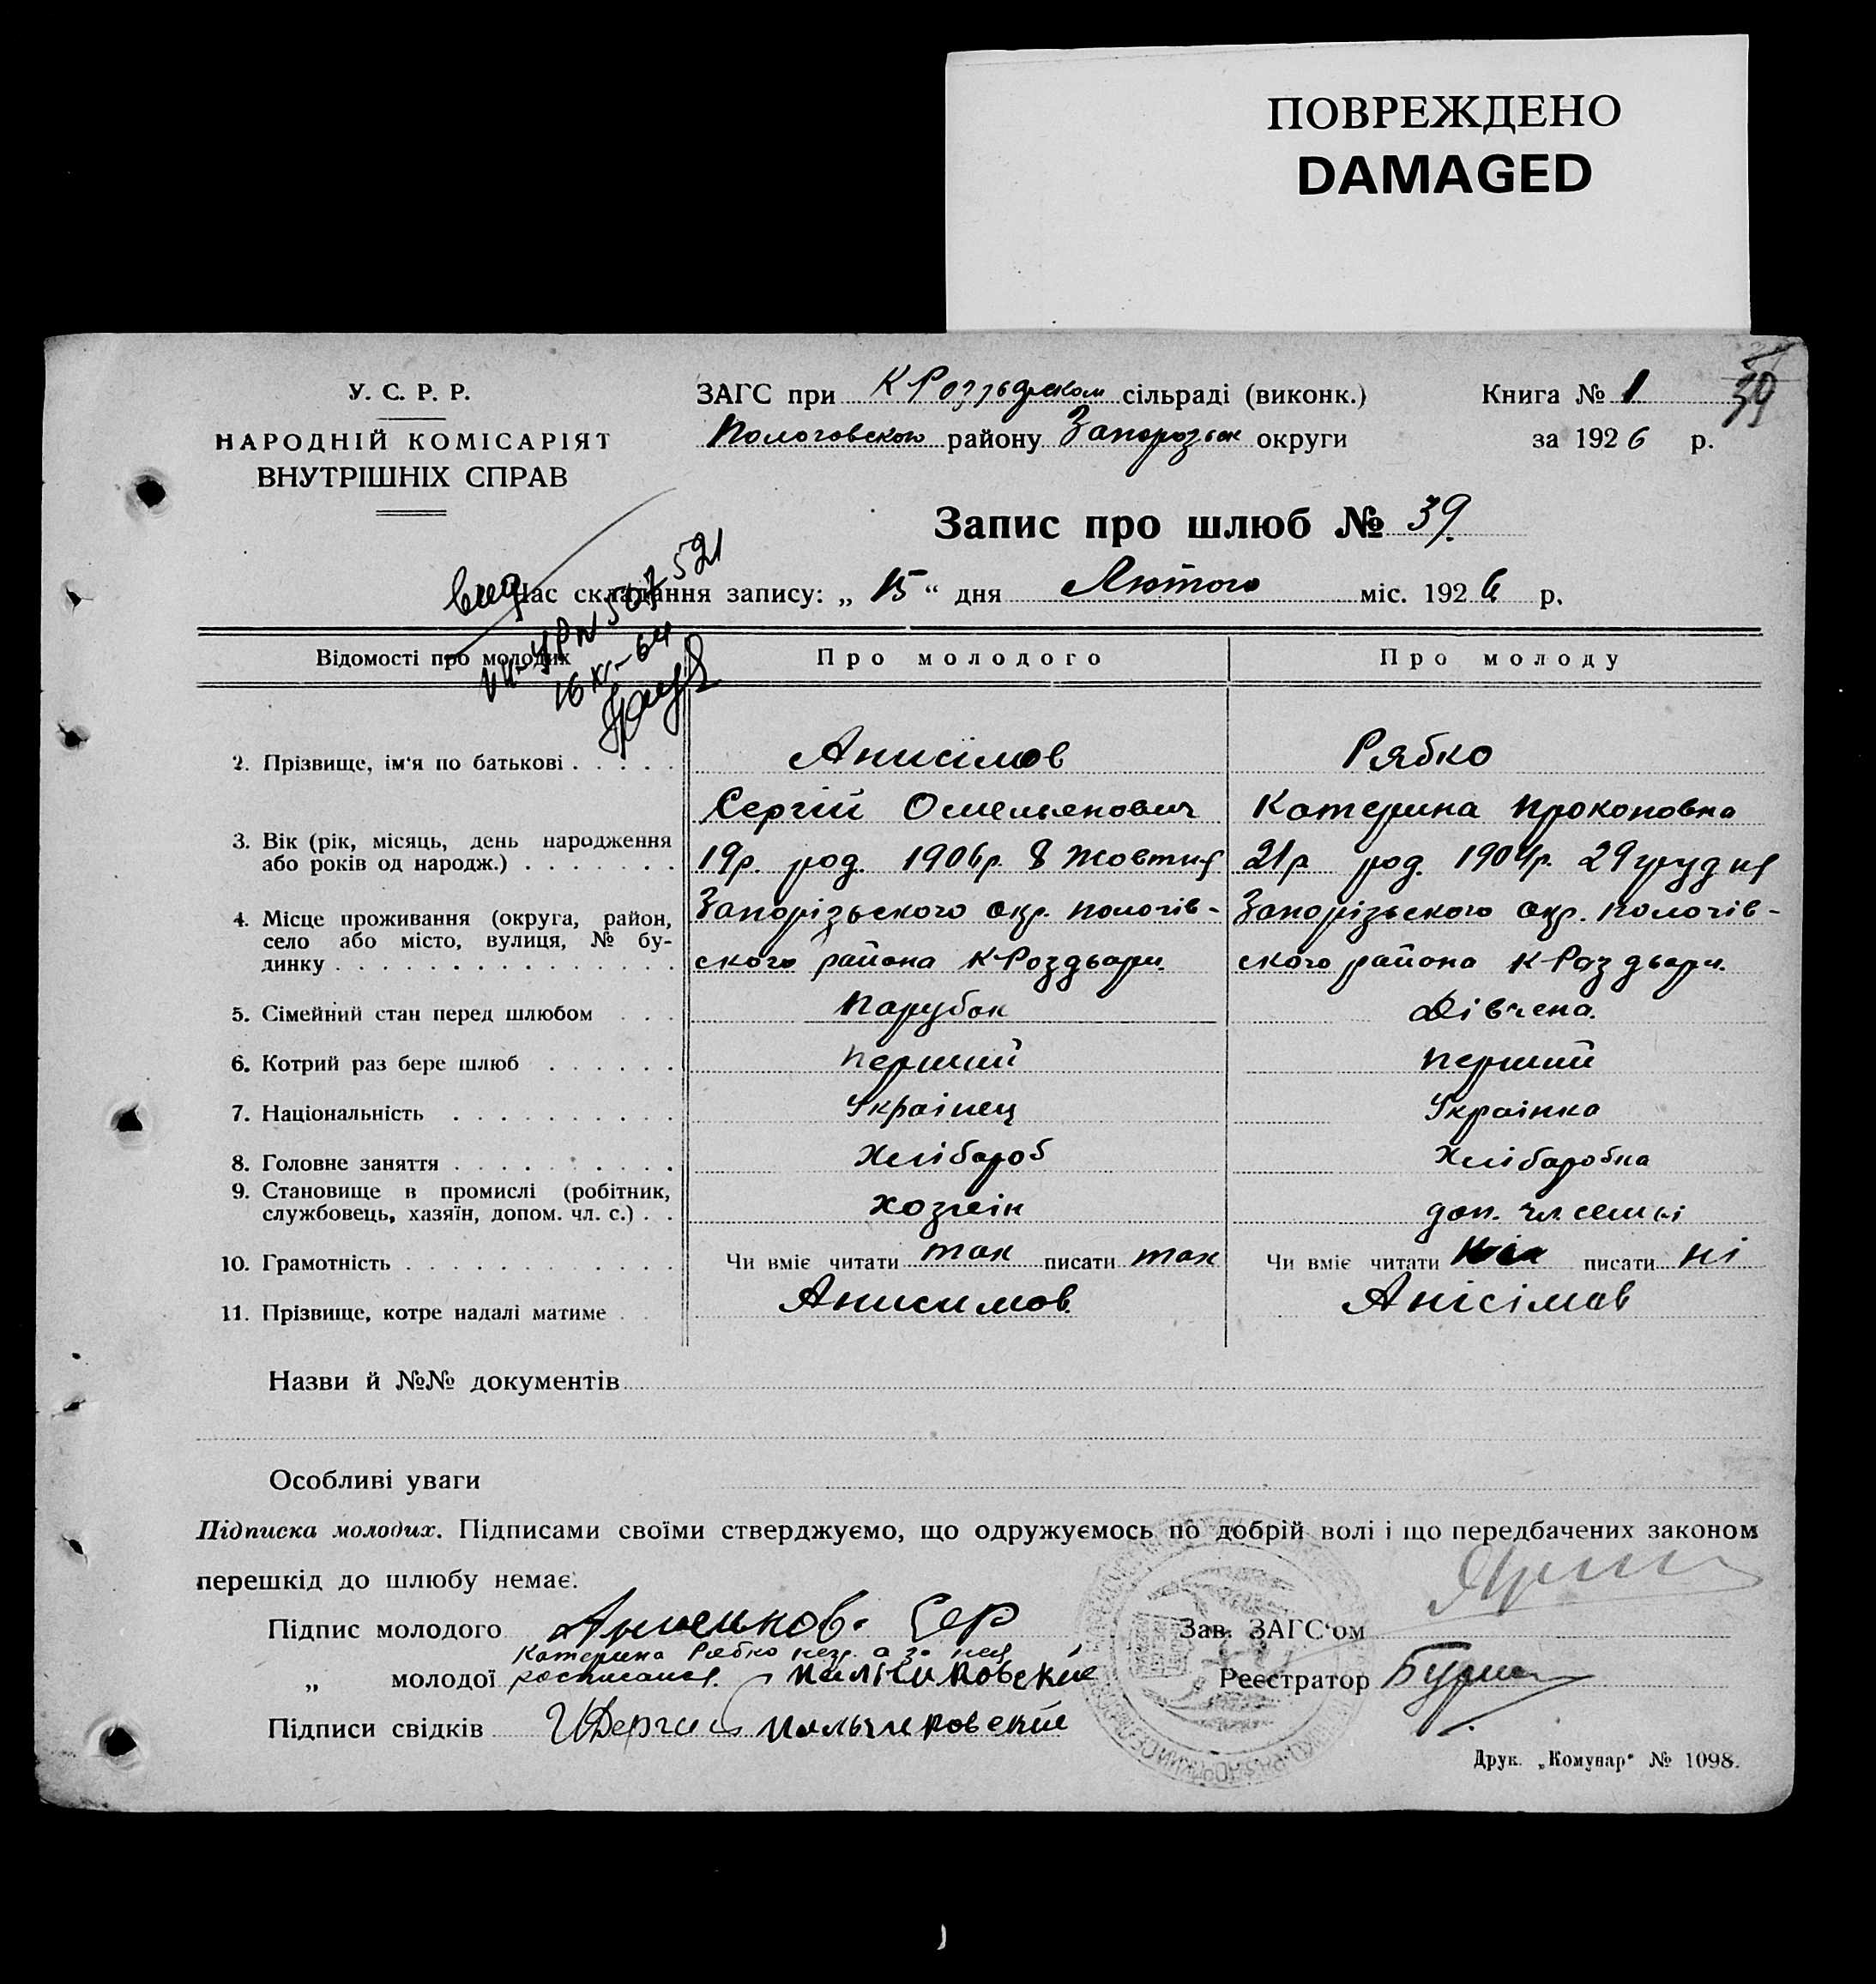 ПОВРЕЖДЕНО
DAMAGED
39
У. С. Р. Р.
НАРОДНІЙ КОМІСАРІЯТ
ВНУТРІШНІХ СПРАВ
ЗАГС при К Роззьдрском сільраді (виконк.)
Пологовского району Запорозьк округи
Книга № 1
за 1926 р.
Запис про шлюб № 39.
Час складання запису: „ 15 “ дня Лютого міс. 1926 р.
521
16 XI-64
Відомості про молодих
Про молодого
Про молоду
2. Прізвище, ім‘я по батькові . . . . .
Анисімов
Рябко
Сергій Омельянович
Катерина Прокоповна
3. Вік (рік, місяць, день народження
або років од народж.) . . . . . . .
19р. род. 1906р. 8 Жовтня
21р род. 1904р. 29 грудня
4. Місце проживання (округа, район,
село або місто, вулиця, № бу-
динку . . . . . . . . . . . . . . .
Запорізьского окр. пологів-
ского района К Роздьори.
Запорізьского окр. пологів-
ского района К Роздьори.
5. Сімейний стан перед шлюбом . . .
Парубок
Дівчена.
6. Котрий раз бере шлюб . . . . . .
перший
перший
7. Національність . . . . . . . . . .
Украінец
Украінка
8. Головне заняття . . . . . . . . . .
Хлібароб
Хлібаробка
9. Становище в промислі (робітник,
службовець, хазяїн, допом. чл. с.) . .
хозяін
доп. чл. семьі
10. Грамотність . . . . . . . . . . . .
Чи вміє читати так писати так
Чи вміє читати писати ні
11. Прізвище, котре надалі матиме . .
Анисимов.
Анісімов
Назви й №№ документів
Особливі уваги
Підписка молодих. Підписами своїми стверджуємо, що одружуємось по добрій волі і що передбачених законом
перешкід до шлюбу немає.
Підпис молодого Сер
Катерина Рябко незг. а за нея
„ молодої росписался. Пальчиковский
Підписи свідків Пальчиковский
Зав. ЗАГС‘ом
Реєстратор
Друк. „Комунар“ № 1098.